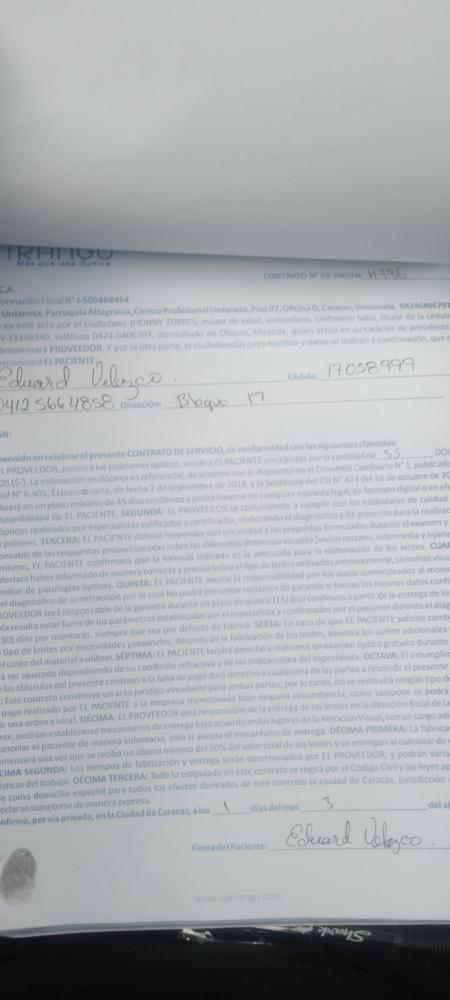 TRANGO
Más que una Óptica
CONTRATO N° DE ORDEN 11796
C.A.
formación Fiscal N° J-505868454
Urdaneta, Parroquia Altagracia, Centro Profesional Urdaneta, Piso 07, Oficina D, Caracas, Venezuela. 0424640679
en este acto por el ciudadano JHONNY TORRES, mayor de edad, venezolano, civilmente hábil, titular de la cédula
V-18348340, teléfono 0424-6406797, domiciliado en Chacao, Miranda, quien actúa en su carácter de presidente
denominará PROVEEDOR. Y por la otra parte, el ciudadano(a) cuyo nombre y datos se indican a continuación, que
enominará EL PACIENTE:
Eduard Velazco. Cédula: 17058999
0412 5664858 Dirección: Bloque 17
N:
nvenido en celebrar el presente CONTRATO DE SERVICIO, de conformidad con las siguientes cláusulas:
L PROVEEDOR, previo a los exámenes ópticos, vende a EL PACIENTE unos lentes por la cantidad de 35 DÓ
OS ($-). La estimación en dólares es referencial, de acuerdo con lo dispuesto en el Convenio Cambiario N° 1, publicado
ial N° 6.405, Extraordinaria, de fecha 7 de septiembre de 2018, y la Sentencia del TSJ N° 424 del 16 de octubre de 20
lizará en un plazo máximo de 45 días continuos y podrá hacerse en cualquier moneda legal, en formato digital o en efe
sponibilidad de EL PACIENTE. SEGUNDA: EL PROVEEDOR se compromete a cumplir con los estándares de calidad
ópticos realizados por especialistas calificados y certificados, elaborando el diagnóstico y RX prescrito para la realizac
prótesis. TERCERA: EL PACIENTE deberá responder con sinceridad a las preguntas formuladas durante el examen y
onsable de las respuestas proporcionadas sobre las diferentes distancias visuales (visión cercana, intermedia y lejana
mismo, EL PACIENTE confirmará que la fórmula indicada es la adecuada para la elaboración de los lentes. CUAR
declara haber informado de manera correcta y precisa sobre el tipo de lentes utilizados anteriormente, síntomas visua
miliar de patologías ópticas. QUINTA: EL PACIENTE asume la responsabilidad por los datos suministrados al mom
el diagnostico de su refracción por lo cual No podrá presentar reclamos de garantía si fueran los mismos datos confi
OVEEDOR será responsable de la garantía durante un plazo de quince (15) días continuos a partir de la entrega de lo
ula resulta estar fuera de los parámetros establecidos por el especialista y confirmados por el paciente durante el diag
30) días por monturas, siempre que sea por defecto de fábrica. SEXTA: En caso de que EL PACIENTE solicite camb
tipo de lentes por necesidades personales, después de la fabricación de los lentes, asumirá los costos adicionales
l costo del material a utilizar. SÉPTIMA: EL PACIENTE tendrá derecho a realizarse un examen óptico gratuito durante
á ser ajustado dependiendo de su condición refractiva y de las indicaciones del especialista. OCTAVA: El incumplim
e las cláusulas del presente contrato o la falta de pago dará derecho a cualquiera de las partes a rescindir el presente
: Este contrato constituye un acto jurídico vinculante para ambas partes; por lo tanto, no se restituirá ningún tipo de
pago realizado por EL PACIENTE a la empresa mencionada bajo ninguna circunstancia, como tampoco se podrá
e una orden a otra). DÉCIMA: EL PROVEEDOR será responsable de la entrega de los lentes en la dirección fiscal de la
nte, podrían establecerse mecanismos de entrega bajo acuerdo en los lugares de la Atención Visual, con un cargo adi
ancelar el paciente de manera voluntaria, solo si acepta el mecanismo de entrega. DÉCIMA PRIMERA: La fabrica
menzará una vez que se reciba un abono mínimo del 50% del valor total de los lentes y se entregan al culminar de
CIMA SEGUNDA: Los tiempos de fabricación y entrega serán determinados por EL PROVEEDOR, y podrán varia
ísticas del trabajo. DÉCIMA TERCERA: Todo lo estipulado en este contrato se regirá por el Código Civil y las leyes ap
e como domicilio especial para todos los efectos derivados de este contrato la ciudad de Caracas, jurisdicción
eclaran someterse de manera expresa.
nfirmo, por vía privada, en la Ciudad de Caracas, a los 1 días del mes 3 del a
Firma del Paciente: Eduard Velazco.
www.optirango.com
Sharpie